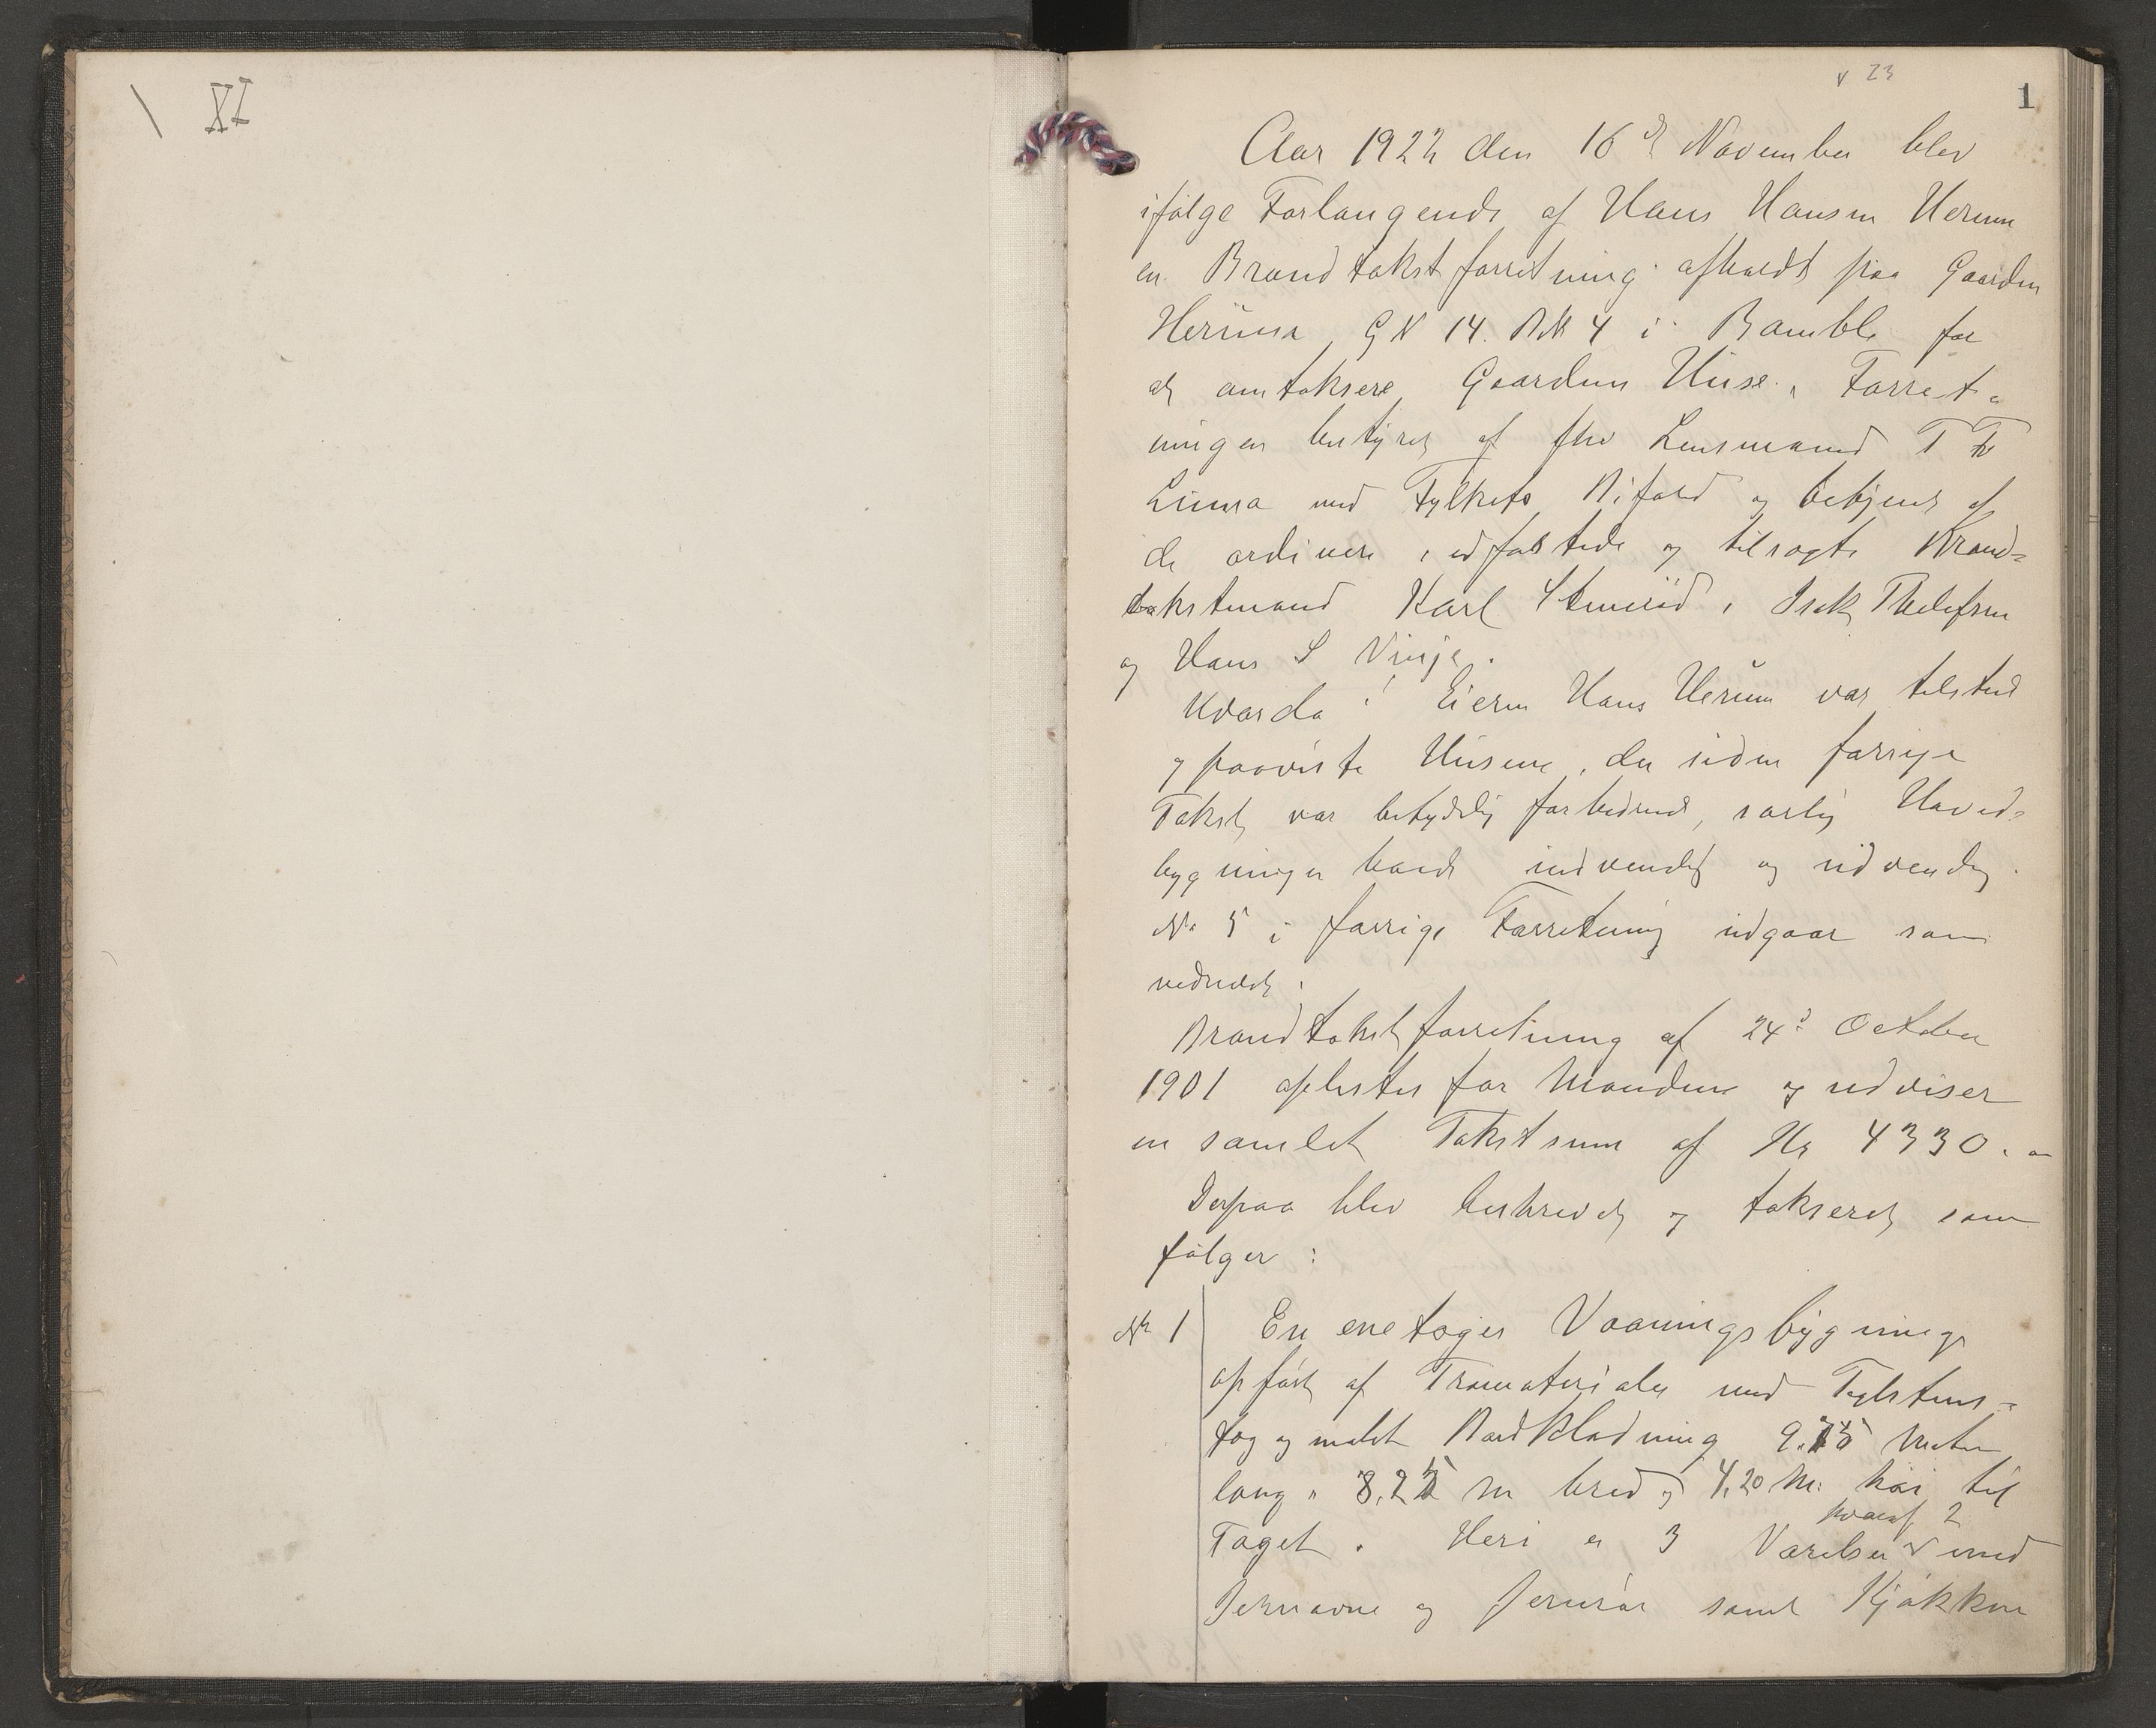 \ XI
v 23
1
Aar 1922 den 16de November blev
ifølge Forlangende af Hans Hansen Herum
en Brandtakstforretning afholdt paa Gaarden
Herum GN 14. BN 4 i Bamble for
at omtaksere Gaardens Huse. Forret-
ningen bestyret af fhv Lensmand T
med Fylkets Bifald og betjent af
de ordinære, edfæstede og tilsagte Brand=
takstmænd Karl Stenerød, Isak Thelefsen
og Hans S Vinje.
Hvorda! Eieren Hans Herum var tilsted
og paaviste Husene, der siden forrige
Takst var betydelig forbedrede, særlig Hoved=
bygningen baade indvendig og udvendig.
No 5 i forrige Forretning udgaar som
nedrevet.
Brandtakstforretning af 24de October
1901 oplæstes for Mændene og udviser
en samlet Takstsum af Kr 4330.-
Derpaa blev beskrevet og takseret som
følger:
No 1 En enetages Vaaningsbygning
opført af Træmaterialer med Taglstens-
tag og malet Bordklædning 9.75 Meter
lang, 8.25 m bred og 4,20 M. høi til
hvoraf 2
Taget. Heri er 3 Værelser v med
Jernovne og Jernrør samt Kjøkken